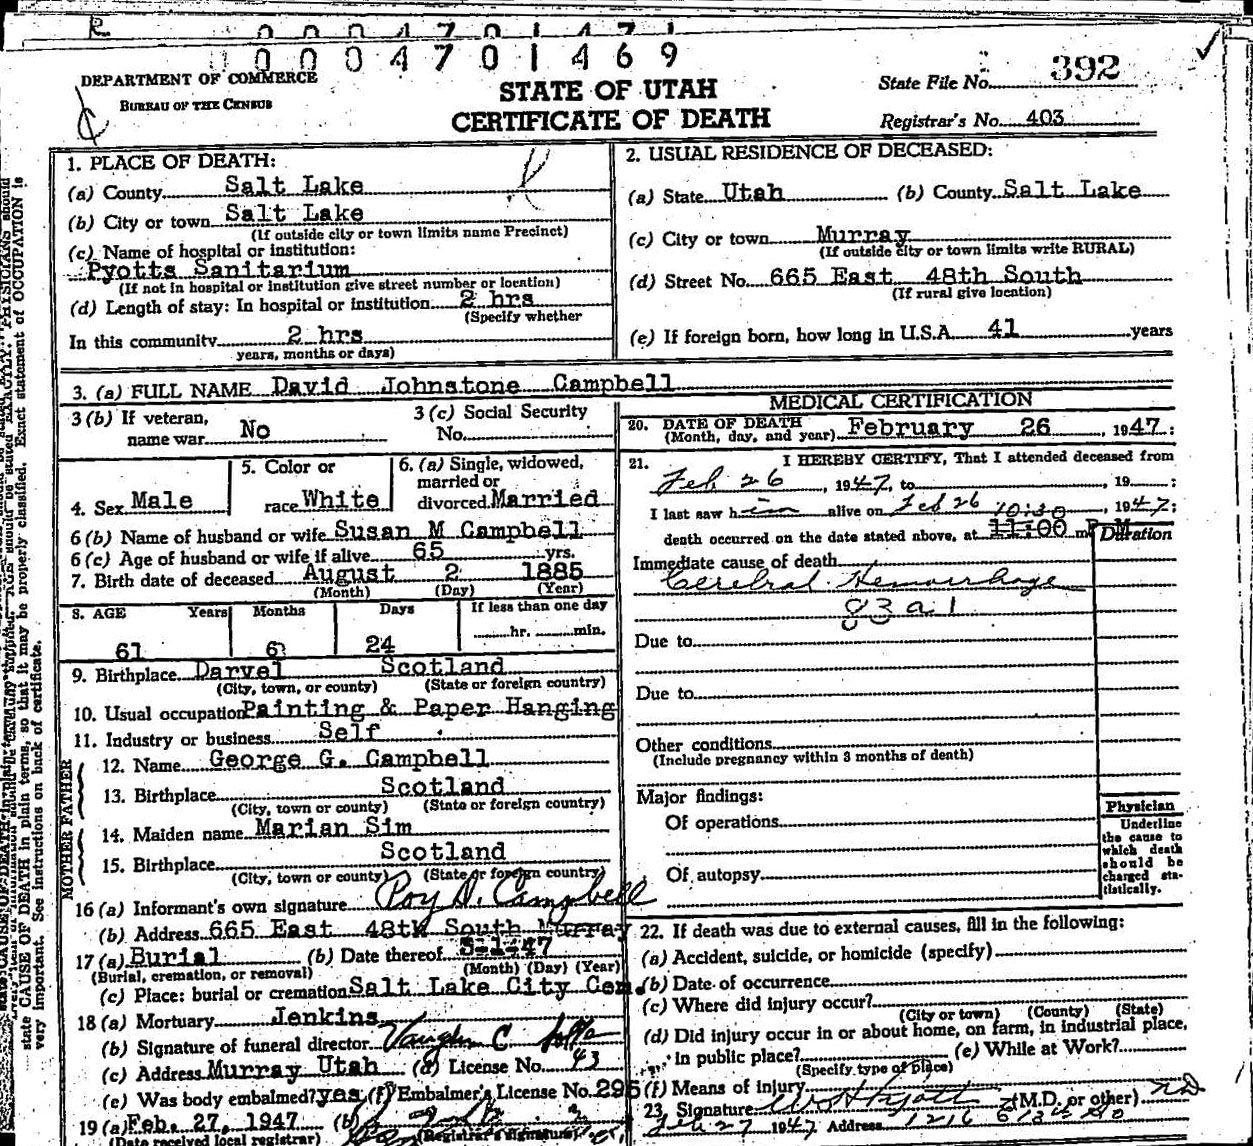 0004701471
0004701469
DEPARTMENT OF COMMERCE
BUREAU OF THE CENSUS
STATE OF UTAH
CERTIFICATE OF DEATH
State File No. 392
Registrar's No. 403
1. PLACE OF DEATH:
(a) County Salt Lake
(b) City or town Salt Lake
(If outside city or town limits name Precinct)
(c) Name of hospital or institution:
Pyotts Sanitarium
(If not in hospital or institution give street number or location)
(d) Length of stay: In hospital or institution 2 hrs
(Specify whether
In this community 2 hrs
years, months or days)
2. USUAL RESIDENCE OF DECEASED:
(a) State Utah (b) County Salt Lake
(c) City or town Murray
(If outside city or town limits write RURAL)
(d) Street No. 665 East 48th South
(If rural give location)
(e) If foreign born, how long in U.S.A. 41 years
3. (a) FULL NAME David Johnstone Campbell
3 (b) If veteran, name war No
3 (c) Social Security No.
4. Sex Male
5. Color or race White
6. (a) Single, widowed, married or divorced Married
6 (b) Name of husband or wife Susan M Campbell
6 (c) Age of husband or wife if alive 65 yrs.
7. Birth date of deceased August 2 1885
(Month) (Day) (Year)
8. AGE Years Months Days If less than one day
61 6 24 hr. min.
9. Birthplace Darvel Scotland
(City, town, or county) (State or foreign country)
10. Usual occupation Painting & Paper Hanging
11. Industry or business Self
FATHER
12. Name George G. Campbell
13. Birthplace Scotland
(City, town or county) (State or foreign country)
MOTHER
14. Maiden name Marian Sim
15. Birthplace Scotland
(City, town or county) (State or foreign country)
16 (a) Informant's own signature Roy D. Campbell
(b) Address 665 East 48th South Murray
17 (a) Burial (b) Date thereof 3-1-47
(Burial, cremation, or removal) (Month) (Day) (Year)
(c) Place: burial or cremation Salt Lake City Cem.
18 (a) Mortuary Jenkins
(b) Signature of funeral director Vaughn C
(c) Address Murray Utah (d) License No. 43
(e) Was body embalmed? yes (f) Embalmer's License No. 295
19 (a) Feb. 27, 1947 (b)
(Date received local registrar) (Registrar's signature)
MEDICAL CERTIFICATION
20. DATE OF DEATH
(Month, day, and year) February 26, 1947:
21. I HEREBY CERTIFY, That I attended deceased from
Feb 26, 1947, to , 19 ;
I last saw him alive on Feb 26, 1947;
10:30
death occurred on the date stated above, at 11:00 P M
Duration
Immediate cause of death
Cerebral Hemorrhage
83a1
Due to
Due to
Other conditions
(Include pregnancy within 3 months of death)
Major findings:
Of operations
Of autopsy
Physician
Underline
the cause to
which death
should be
charged sta-
tistically.
22. If death was due to external causes, fill in the following:
(a) Accident, suicide, or homicide (specify)
(b) Date of occurrence
(c) Where did injury occur?
(City or town) (County) (State)
(d) Did injury occur in or about home, on farm, in industrial place,
in public place? (e) While at Work?
(Specify type of place)
(f) Means of injury
23. Signature W H Pyott (M.D. or other) MD
Feb 27 1947 Address 1216 E 13th So
state CAUSE OF DEATH in plain terms, so that it may be properly classified. Exact statement of OCCUPATION is
very important. See instructions on back of certificate.